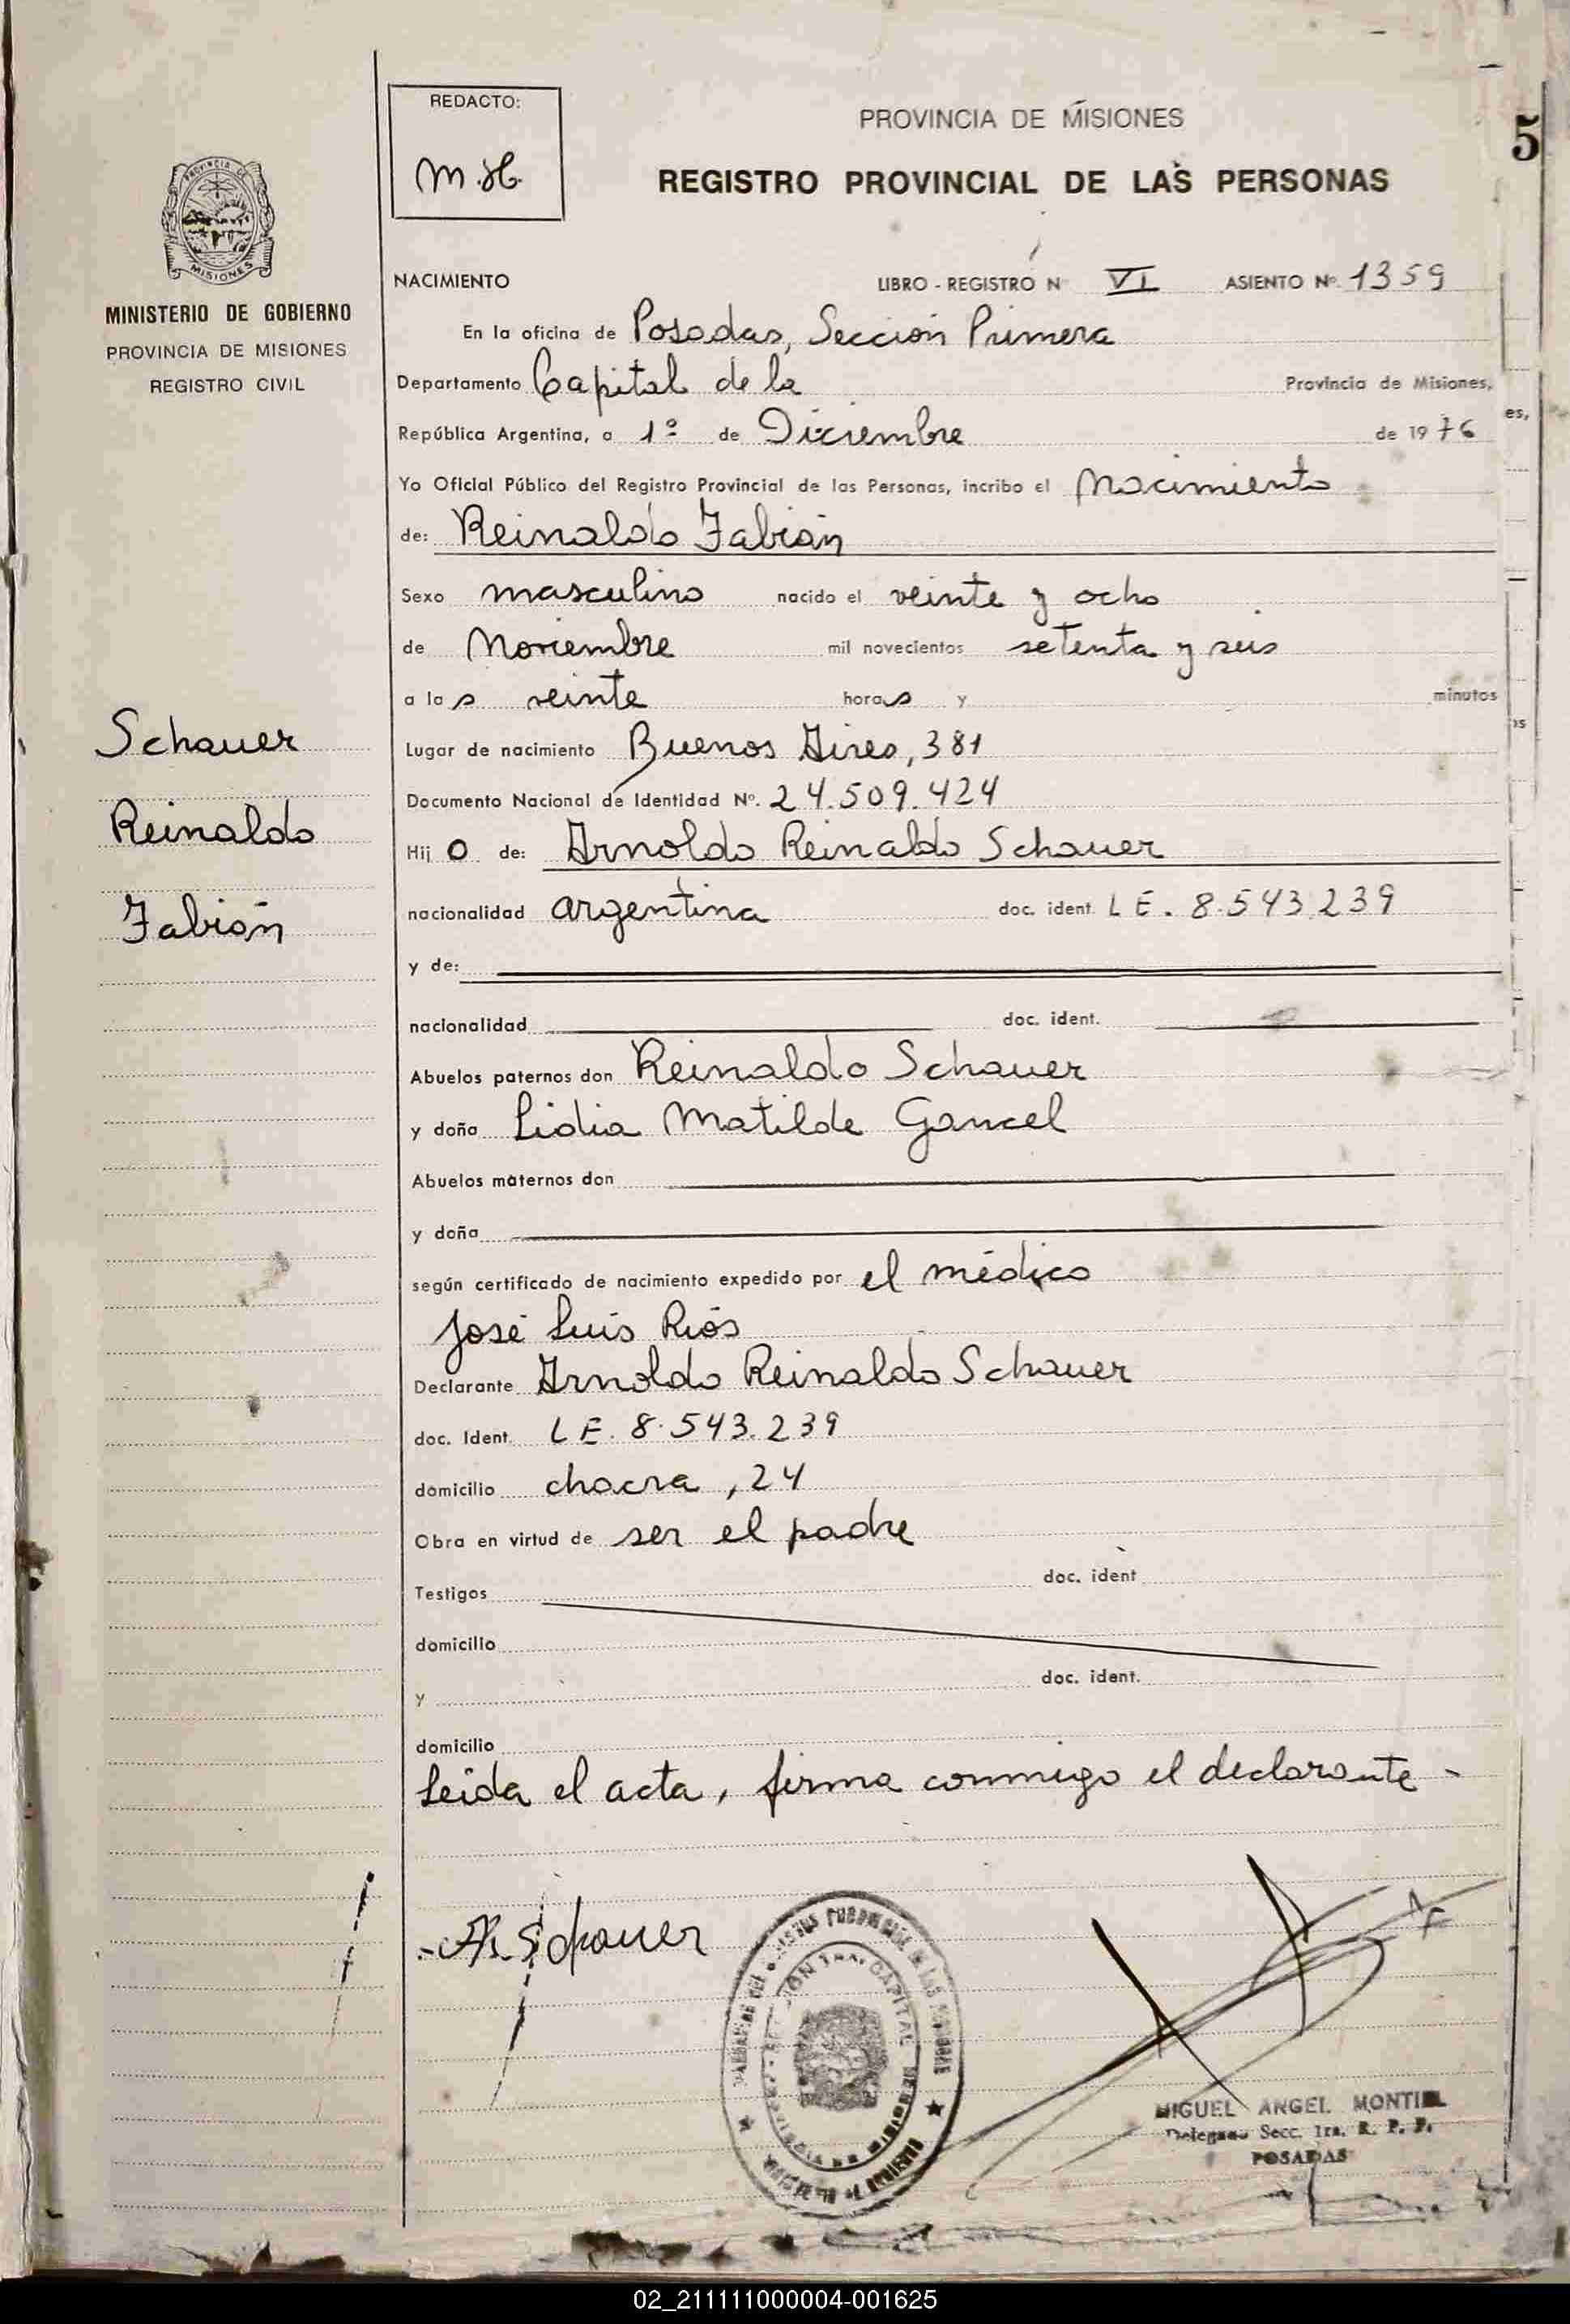 REDACTO:
M.H.
PROVINCIA DE MISIONES
5
REGISTRO PROVINCIAL DE LAS PERSONAS
PROVINCIA DE
MISIONES
MINISTERIO DE GOBIERNO
PROVINCIA DE MISIONES
REGISTRO CIVIL
NACIMIENTO LIBRO - REGISTRO Nº VI ASIENTO Nº. 1359
En la oficina de Posadas, Sección Primera
Departamento Capital de la Provincia de Misiones,
es,
República Argentina, a 1º de Diciembre de 1976
Yo Oficial Público del Registro Provincial de las Personas, incribo el Nacimiento
de: Reinaldo Fabián
Sexo masculino nacido el veinte y ocho
de Noviembre mil novecientos setenta y seis
a las veinte horas y minutos
os
Schauer
Reinaldo
Fabián
Lugar de nacimiento Buenos Aires, 381
Documento Nacional de Identidad Nº. 24.509.424
Hijo de: Arnoldo Reinaldo Schauer
nacionalidad argentina doc. ident. L E. 8.543.239
y de:
nacionalidad doc. ident.
Abuelos paternos don Reinaldo Schauer
y doña Lidia Matilde Gancel
Abuelos maternos don
y doña
según certificado de nacimiento expedido por el médico
José Luis Riós
Declarante Arnoldo Reinaldo Schauer
doc. Ident. L E. 8.543.239
domicilio chacra, 24
Obra en virtud de ser el padre
Testigos doc. ident
domicilio
y doc. ident.
domicilio
Leida el acta, firma conmigo el declarante -
A.R. Schauer
MIGUEL ANGEL MONTIEL
Delegado Secc. 1ra. R. P. P.
POSADAS
02_211111000004-001625